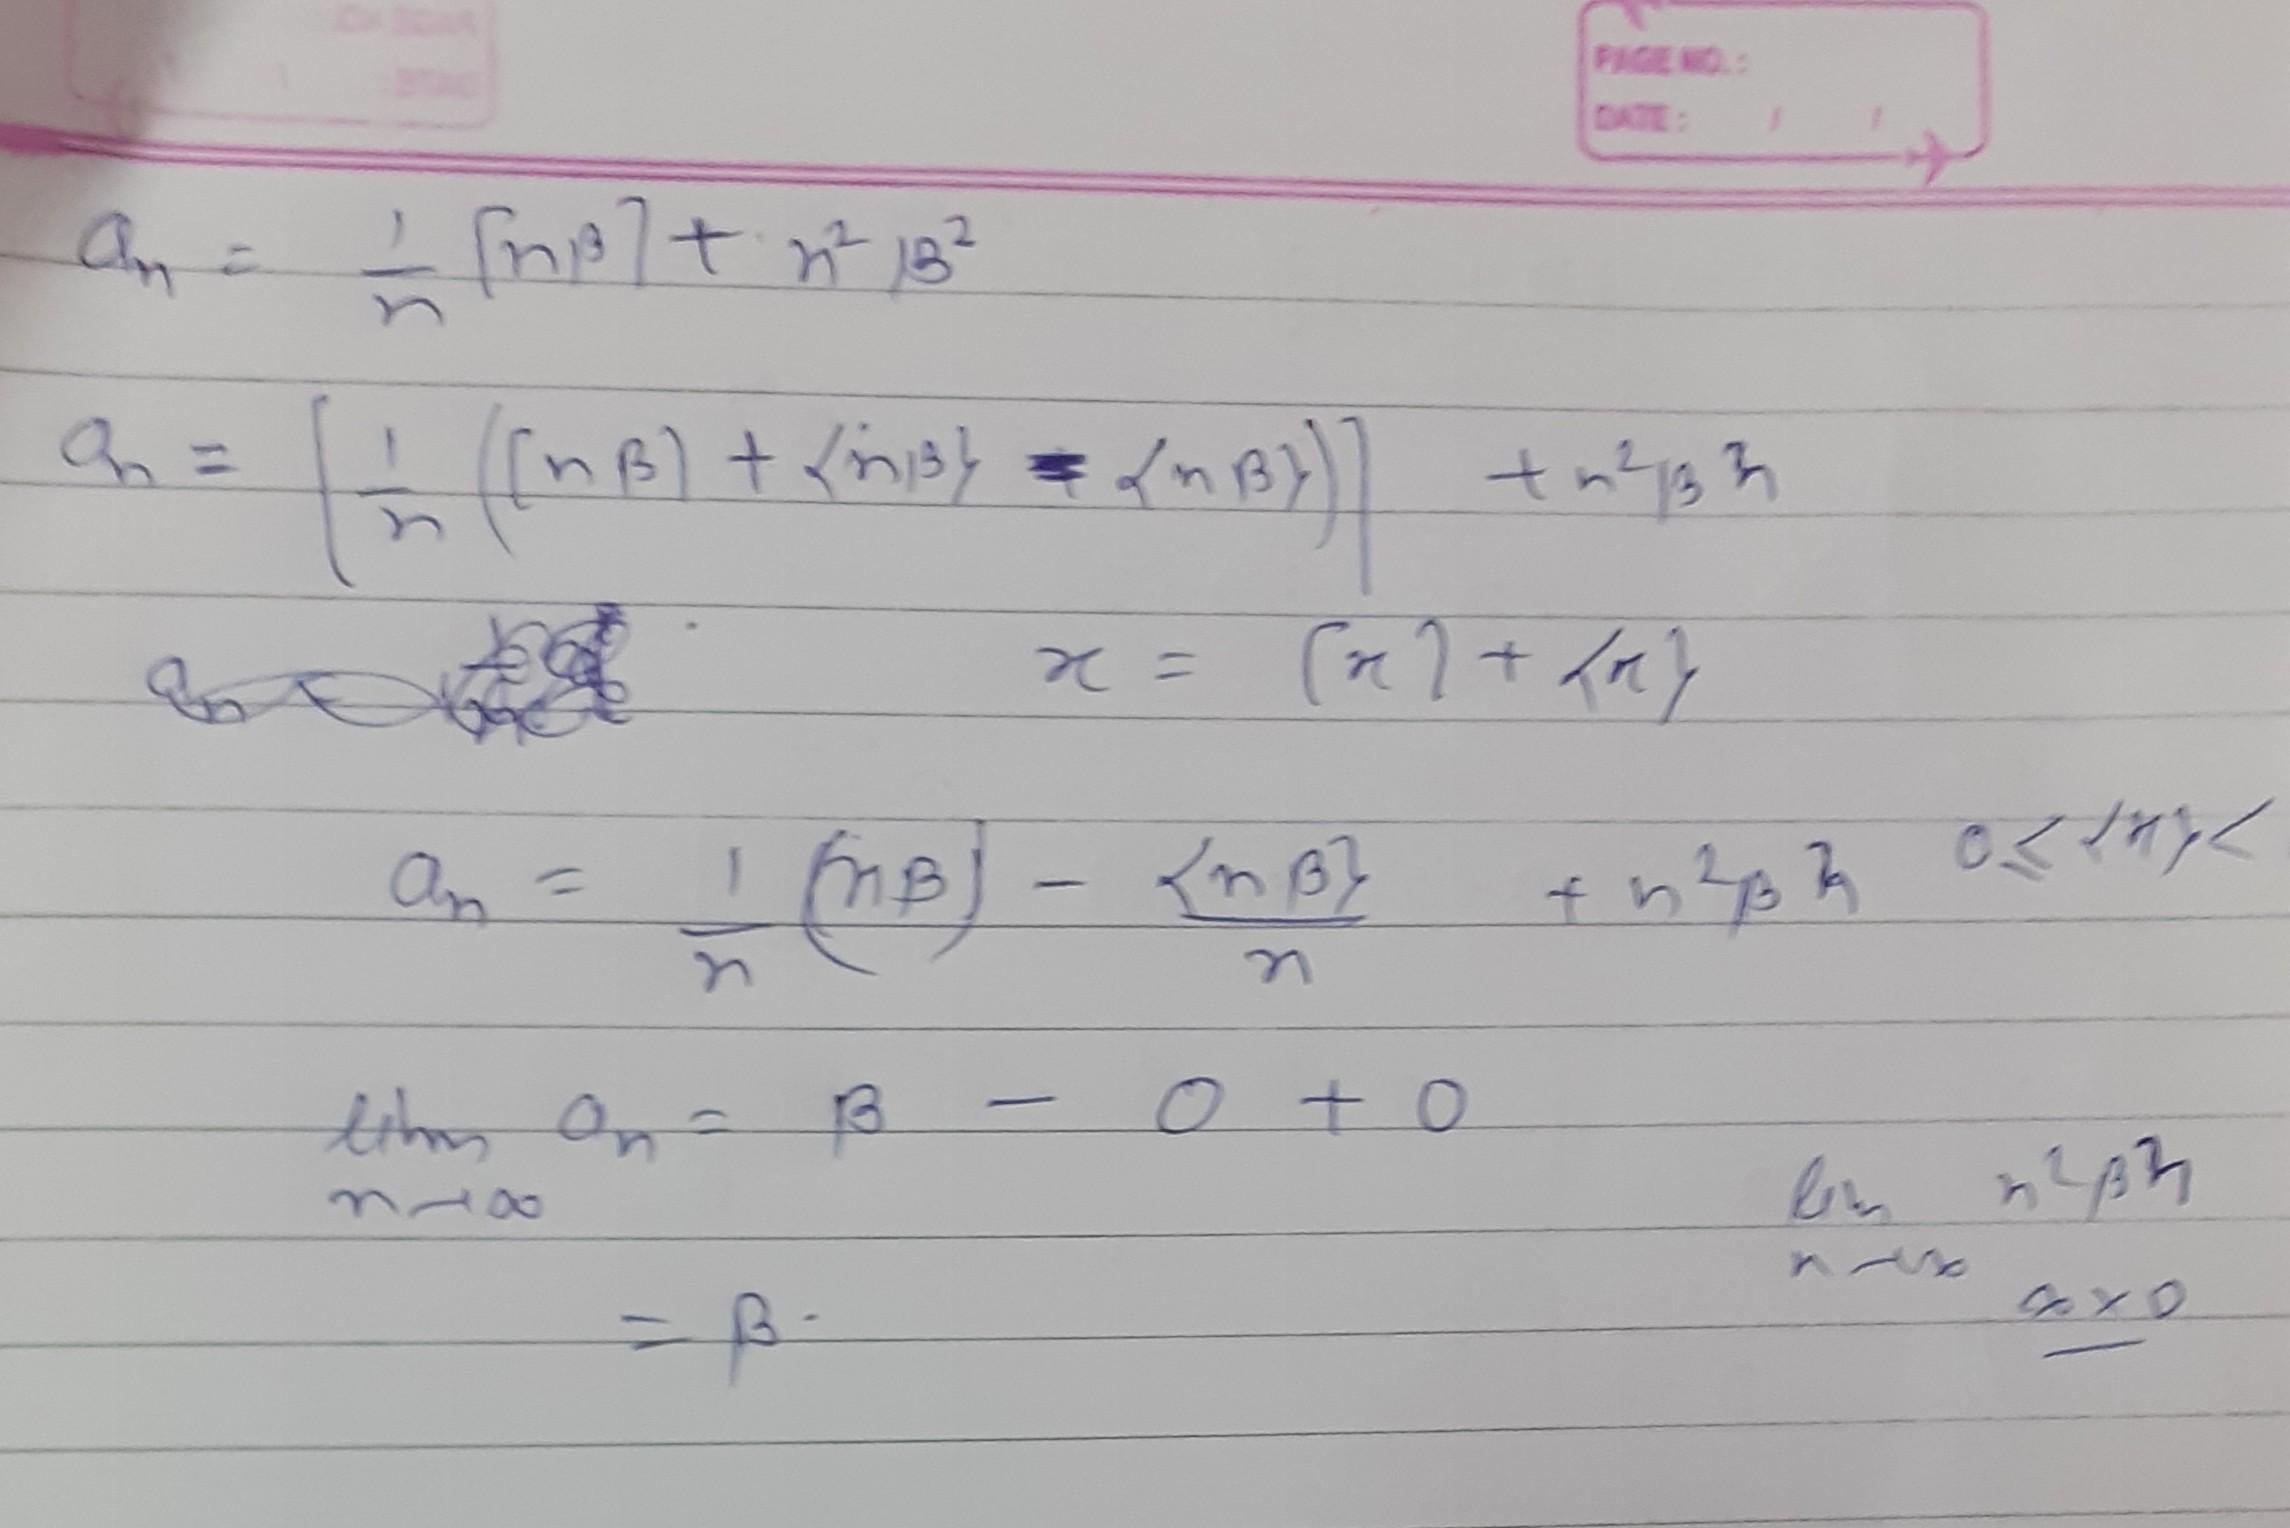 PAGE NO.:
DATE: / /
aₙ = 1/n [nβ] + n² β²
aₙ = [1/n ([nβ] + {nβ} - {nβ})] + n²βⁿ
x = [x] + {x}
aₙ = 1/n (nβ) - {nβ}/n + n²βⁿ 0 ≤ {x} <
lim n→∞ aₙ = β - 0 + 0
lim n→∞ n²βⁿ
∞ × 0
= β.